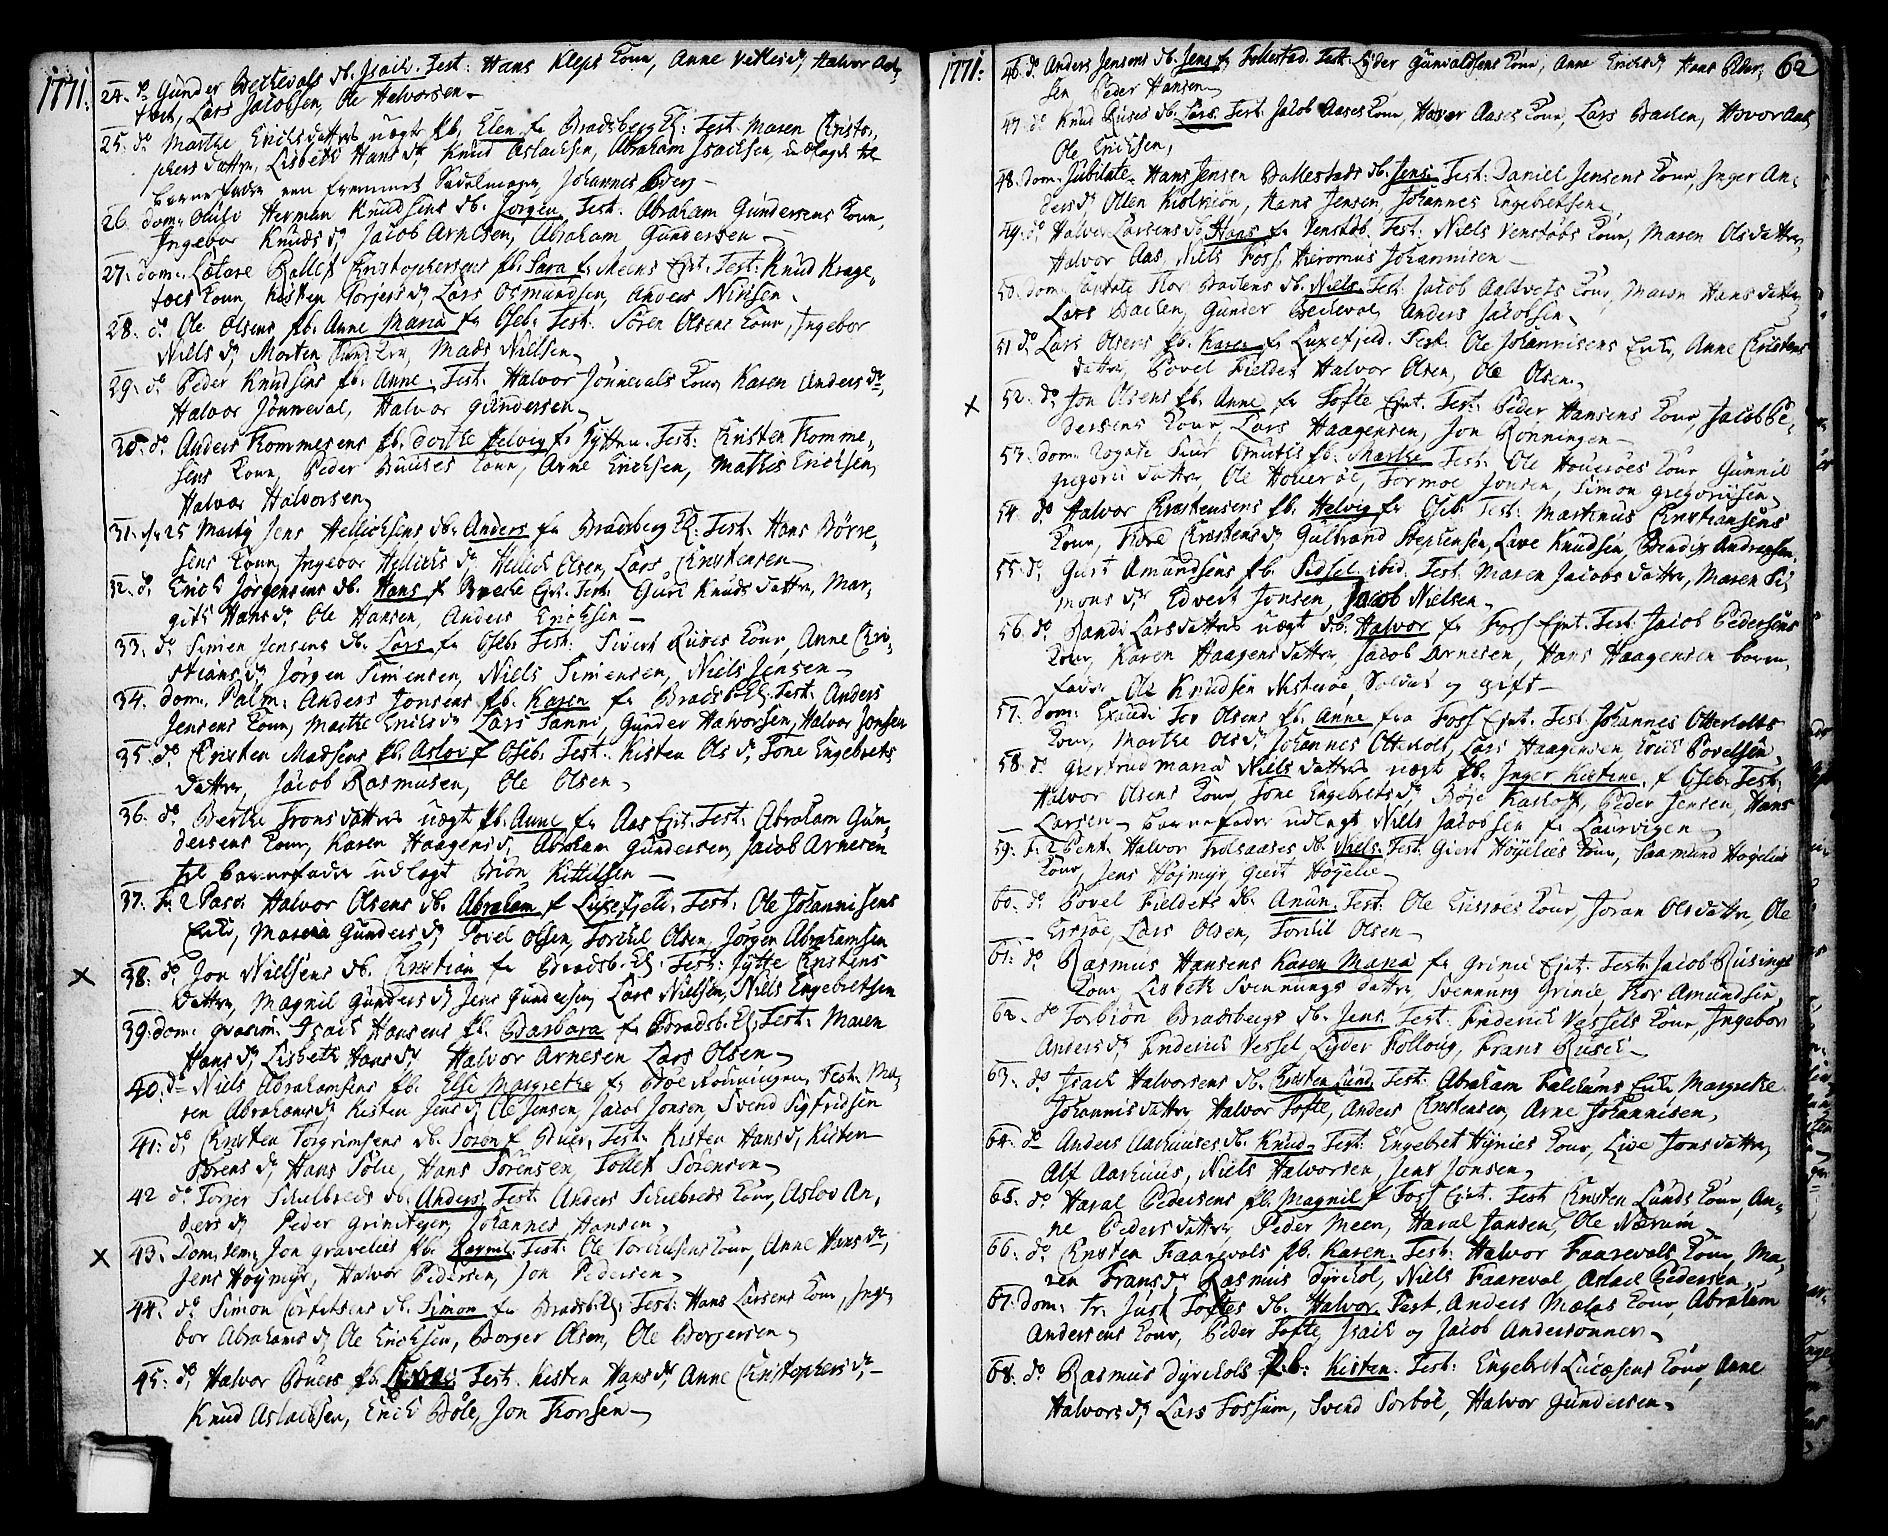 1771.
24. do Gunder Bechevals db. Isach. Test: Hans Kleps Kone, Anne Vetlesd,, Halvor Aas,
Lars Jacobsen, Ole Halvorsen.
25. do Marthe Erichsdatters uægte pb. Elen fr Bradsberg Ej: Test: Maren Christo,
phers datter, Lisbeth Hansd, Knud Aslachsen, Abraham Isachsen, udlagt til
barnefader een fremmet Sadelmager, Johannes Berg
26. dom. Oculi Herman Knudsens db. Jørgen, Test: Abraham Gundersens Kone,
Ingebor Knudsd, Jacob Arnesen, Abraham Gundersen
27. dom. Lætare Rollef Christophersens pb. Sara fr Meens Ejt. Test: Knud Krage,
toes Kone, Kisten Torjersd, Lars Osmundsen, Anders Nielsen.
28. do Ole Olsens pb. Anne Maria fr Oseb. Test: Søren Olsens Kone, Ingebor
Nielsd, Morten, Mads Nielsen
29. do Peder Knudsens pb. Anne, Test: Halvor Jønnevals Kone, Karen Andersd,
Halvor Jønneval, Halvor Gundersen
30. do Anders Trommesens pb. Dorthe Helvig fr. Test: Christen Tromme,
sens Kone, Peder Buuses Kone, Arne Erichsen, Mathis Erichsen,
Halvor Halvorsen
31. fr 25 Marty Jens Hellichsens db. Anders fr Bradsberg Ej: Test: Hans Børre,
sens Kone, Ingebor Hellichs d, Hellich Olsen, Lars Christensen
32. do Erich Jørgensens db. Hans f Ejt. Test: Guri Knudsdatter, Mar,
gith Hansd, Ole Hansen, Anders Erichsen
33. do Simen Jensens db. Lars fr Oseb. Test: Sivert Ruses Kone, Anne Chri,
stiansd, Jørgen Simensen, Niels Simensen, Niels Jensen
34. dom. Palm: Anders Jonsens pb. Karen fr Bradsb. Ej. Test: Anders
Jensens Kone, Marthe Erichsd, Lars Tanni, Gunder Halvorsen, Halvor Jonsen
35. do Christen Madsens pb. Aslov f Oseb. Test: Kisten Olsd, Tone Engebrets
datter, Jacob Rasmusen, Ole Olsen
36. do Berthe Tronsdatters uægt pb. Anne fr Aas Ejt. Test: Abraham Gun,
dersens Kone, Karen Haagensd, Abraham Gundersen, Jacob Arnesen
til barnefader udlagt Biøn Kittilsen
37. Fr 2 Pasch Halvor Olsens db. Abraham f Luxefjeld. Test: Ole Johannisens
Enke, Maren Gundersd, Povel Olsen, Torchil Olsen, Jørgen Abrahamsen
38. do Jon Nielsens db. Christian fr Bradsb. Ej. Test: Jytte Christens
datter, Magnil Gundersd, Jens Gundersen, Lars Nielsen, Niels Engebretsen
39. dom: qvasim. Isach Hansens pb. Barbara fr Bradsb. Ej. Test: Maren
Hansd, Lisbeth Hansd, Halvor Arnesen, Lars Olsen
40. do Niels Abrahamsens pb. Else Margrethe fr Bøe Rønningen, Test: Ma,
ren Abrahamsd, Kisten Jensd, Ole Jensen, Jacob Jonsen, Svend Sigfridsen
41. do Christen Torgrimsens db. Søren f Buer, Test: Kisten Hansd, Kisten
Sørensd, Hans Solie, Hans Sørensen, Tollef Sørensen
42 do Torger Schelbreds db. Anders, Test: Anders Schelbreds Kone, Aslov An,
dersd, Peder Grinsteger, Johannes Hansen
43. dom. Jon Gravelies pb. Ragnil. Test: Ole Torchelsens Kone, Anne Hansd,
Jens Høymyr, Halvor Pedersen, Jon Pedersen
44. do Simon Corfitsens db. Simon fr Bradsb. Ej. Test: Hans Larsens Kone, Inge,
bor Abrahamsd, Ole Erichsen, Borger Olsen, Ole Borgersen
45. do Halvor Buers pb. Test. Kisten Hansd, Anne Christophersd,
Knud Aslachsen, Erich Bøle, Jon Thorsen
1771.
62
46. do Anders Jensens db. Jens fr Follestad. Test: Lyder Gunvaldsens Kone, Anne Erichsd, Hans Peder,
sen, Peder Hansen
47. do Knud Ruses db. Lars. Test: Jacob Aases Kone, Halvor Aases Kone, Lars Bachen, Hovor Aas,
Ole Erichsen,
48. dom. Jubilate. Hans Jensen Ballestads db. Jens. Test: Daniel Jensens Kone, Inger An,
dersd, Ellen Kiølnion, Hans Jensen, Johannes Engebretsen
49. do Halvor Larsens db. Hans fr Venstøb. Test: Niels Venstøbs Kone, Maren Olsdatter,
Halvor Aas, Niels Foss, Hieromus Johannisen
50. dom. Cantate Thor Bachens db. Niels. Test: Jacob Aaltvets Kone, Maren Hansdatter,
Lars Bachen, Gunder Becheval, Anders Jacobsen
51 do Lars Olsens pb. Karen fr Luxefjeld. Test. Ole Johannisens Enke, Anne Christens
datter, Povel Fieldet, Halvor Olsen, Ole Olsen
52. do Jon Olsens pb. Anne fr Tofte Ejt. Test: Peder Hansens Kone, Jacob Pe,
dersens Kone, Lars Haagensen, Jon Rønningen
53. dom. Rogate Siur Omutis pb. Marthe Test. Ole Houerøes Kone, Gunnil
Gregorii datter, Ole Houerøe, Tormoe Jonsen, Simon Gregoriisen
54. do Halvor Christensens pb. Helvig fr Oseb. Test: Martinus Christiansens
Kone, Thore Christensd, Gulbrand Stephensen, Live Knudsen, Bendix Andreasen
55. do Guri Amundsens pb. Sidsel ibid. Test. Maren Jacobsdatter, Maren Si,
monsd, Edvert Jonsen, Jacob Nielsen
56. do Randi Larsdatters uægt db. Halvor fr Foss Ejt. Test: Jacob Pedersens
Kone, Karen Haagensdatter, Jacob Arnesen, Hans Haagensen barne,
fader Ole Knudsen Nisterøe, Soldat og gift
57. dom. Exaudi Tor Olsens pb. Anne fra Foss Ejt. Test. Johannes Otterholts
Kone, Marthe Olsd, Johannes Otterholt, Lars Haagensen, Erich Povelsen,
58. do Giertrud Maria Nielsdatters uægt pb. Inger Kistine f Oseb. Test:
Halvor Olsens Kone, Tone Engebretsd, Bøje Karhoff, Peder Jensen, Hans
Larsen, barnefader udlagt Niels Jacobsen fr Laurvigen
59. Fr 2 Pent. Halvor Trolsaases db. Niels. Test: Giert Høyelies Kone, Saamund Høyelies
Kone, Jens Højmyr, Giert Høyelie
60. do Povel Fielders db. Anun. Test: Ole Erisøes Kone, Joran Olsdatter, Ole
Erisøe, Lars Olsen, Torchil Olsen
61. do Rasmus Hansens Karen Maria fr Grinie Ejt. Test: Jacob Risings
Kone, Lisbeth Svennungsdatter, Svennung Grinie, Thor Amundsen
62. do Torbiøn Bradsbergs db. Jens. Test: Friderich Vessels Kone, Ingebor
Andersd, Friderich Vessel, Lyder Follaug, Frans Rusch
63. do Isach Halvorsens db. Christen Lund. Test: Abraham Falchums Enke, Margrethe
Johannisdatter, Halvor Tofte, Anders Christensen, Arne Johannisen,
64. do Anders Aarhuuses db. Knud, Test: Engebret Hynies Kone, Live Jonsdatter,
Alf Aarhuus, Niels Halvorsen, Jens Jonsen
65. do Haral Pedersens pb. Magnil f Foss Ejt. Test Christen Lunds Kone, An,
ne Pedersdatter, Peder Meen, Haral Jansen, Ole Nærum
66. do Christen Faarevals pb. Karen. Test: Halvor Faarevals Kone, Ma,
ren Fransd, Rasmus Dyrekol, Niels Faareval, Aslach Pedersen
67. dom: tr: Just Toftes db. Halvor Test. Anders Mælas Kone, Abraham
Andersens Kone, Peder Tofte, Isach og Jacob Andersønner
68. do Rasmus Dyrekols pb: Kisten. Test: Engebret Lucasens Kone, Anne
Halvorsd, Lars Fossum, Svend Sorbøl, Halvor Gundersen